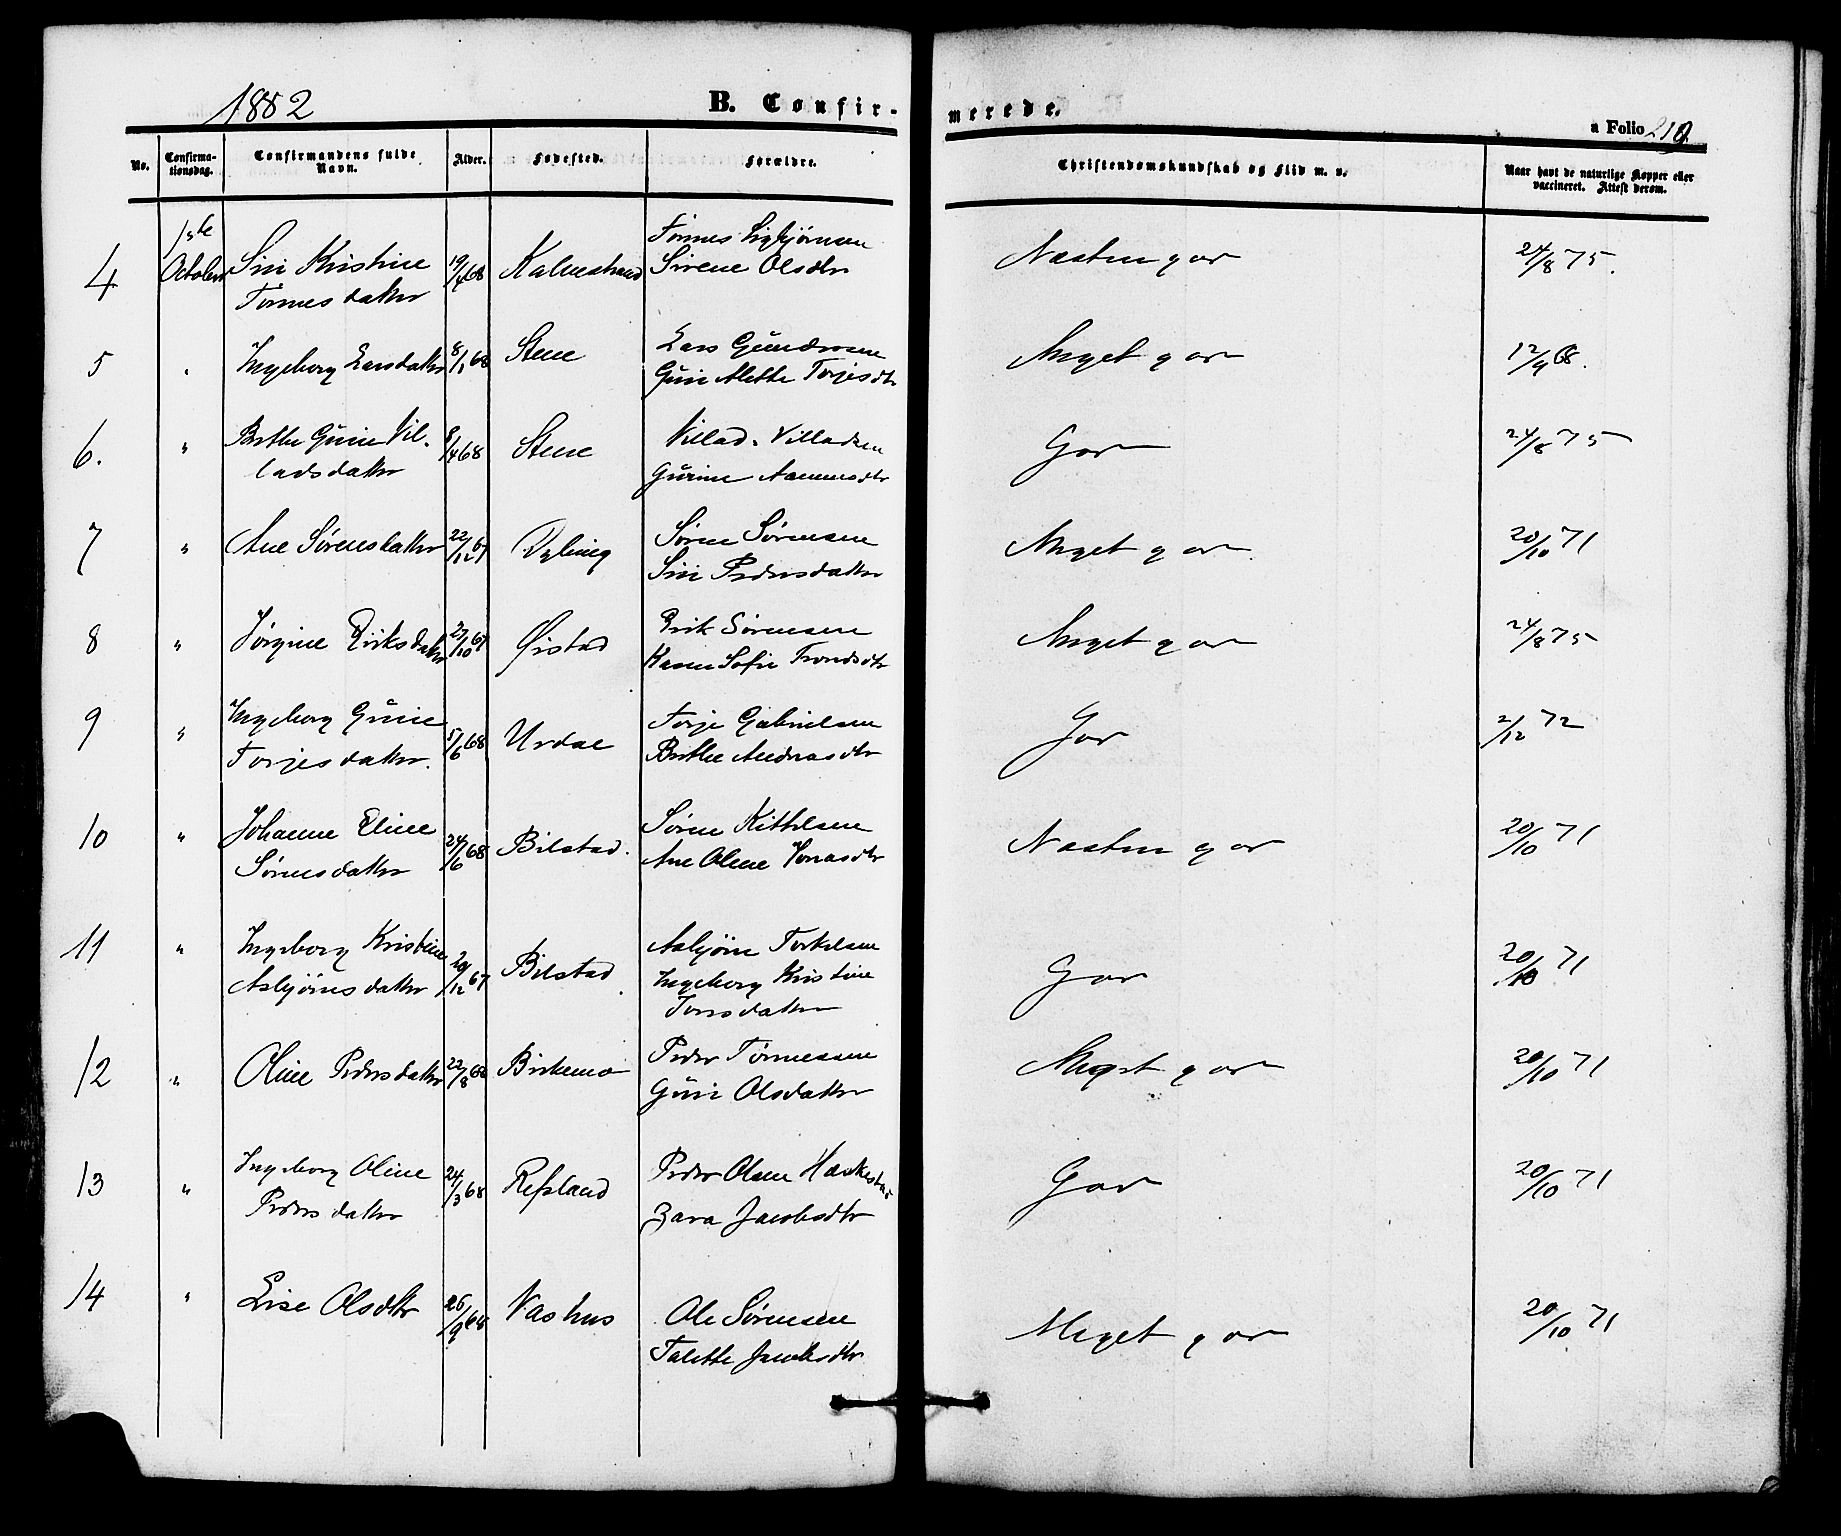 1882
B. Confir-
merede.
a Folio 210
No.
Confirma-
tionsdag.
Confirmandens fulde
Navn.
Alder.
Fødested.
Forældre.
Christendomskundskab og Flid m. v.
Naar havt de naturlige Kopper eller
vaccineret. Attest derom.
1ste
Tønnes Sigbjørnsen
4 October Siri Kristine 19/4 68 Kalvestrand Sirene Olsdtr Næsten god 24/8 75.
Tønnesdatter
5 " Ingeborg Larsdatter 8/1 68 Stene Lars Gundersen Meget god 12/9 68.
Guri Alette Torjesdtr
6. " Berthe Gurine Vil- 9/4 68 Stene Villad Villadsen God 24/8 75
ladsdatter Gurine Aanensdtr
7 " Ane Sørensdatter 22/12 67 Dybing Søren Sørensen Meget god. 20/10 71
Siri Pedersdatter
8 " Jørgine Eriksdatter 27/10 67 Ørstad Erik Sørensen Meget god 24/8 75
Karen Sofie Trondsdtr
9 " Ingeborg Gurie 5/6 68 Urdal Torje Gabrielsen God 2/12 72
Torjesdatter. Berthe Andreasdtr
10 " Johanne Eline 24/6 68 Bilstad. Søren Kittelsen Næsten god 20/10 71
Sørensdatter Ane Olene Jonasdtr
11 " Ingeborg Kristine 29/12 67 Bilstad Asbjørn Terkelsen God 20/10 71
Asbjørnsdatter Ingeborg Kristine
Jonsdatter
12 " Oline Pedersdatter 22/8 68 Birkemo Peder Tønnessen Meget god 20/10 71
Guri Olsdatter
13 " Ingeborg Oline 24/3 68 Refsland Peder Olsen Haskestad God 20/10 71
Pedersdatter Zara Jacobsdtr
14 " Lise Olsdtr 26/9 68 Vashus Ole Sørensen Meget god 20/10 71
Talette Jacobsdtr